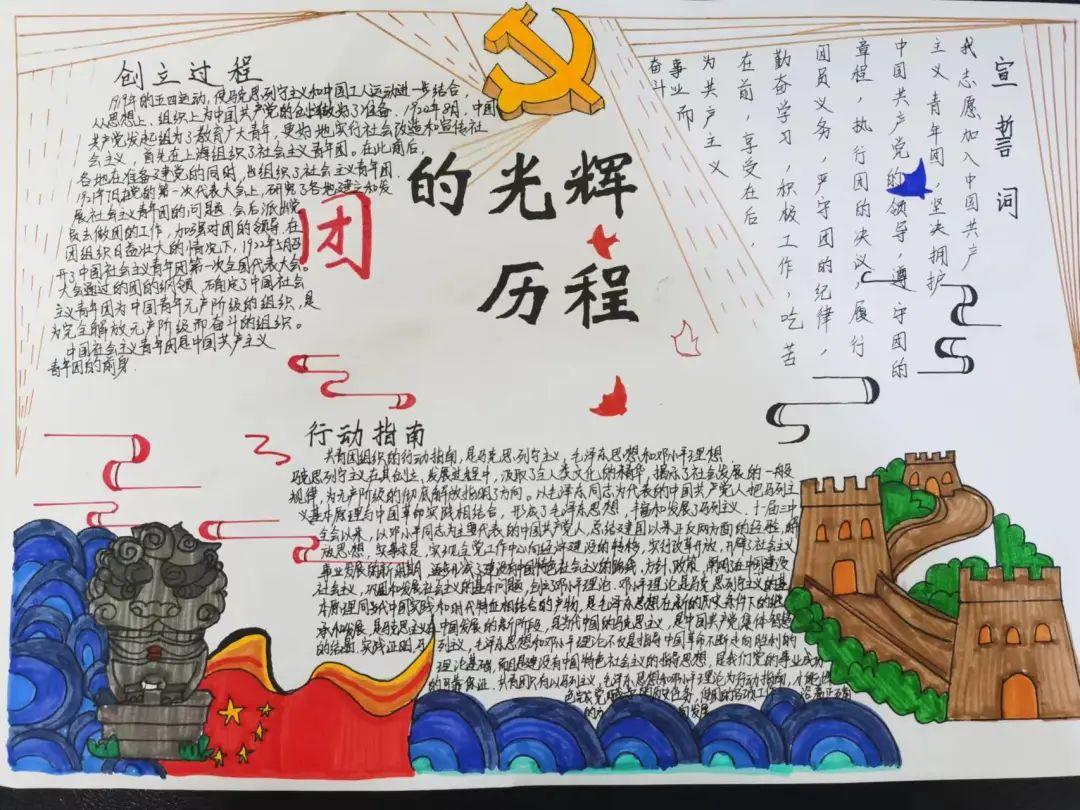 团的光辉
历程
创立过程
1919年的五四运动,使马克思列宁主义和中国工人运动进一步结合,
从思想上、组织上为中国共产党的创立做好了准备。1920年8月,中国
共产党发起组为了教育广大青年,更好地实行社会改造和宣传社
会主义,首先在上海组织了社会主义青年团。在此前后,
各地在准备建党的同时,也组织了社会主义青年团
1921年7月在党的第一次代表大会上,研究了各地建立和发
展社会主义青年团的问题.会后派出党
员去做团的工作,加强对团的领导.在
团组织日益壮大的情况下,1922年5月召
开了中国社会主义青年团第一次全国代表大会。
大会通过的团的纲领,确定了中国社会
主义青年团为中国青年无产阶级的组织,是
为完全解放无产阶级而奋斗的组织。
中国社会主义青年团是中国共产主义
青年团的前身.
宣誓词
我志愿加入中国共产
主义青年团,坚决拥护
中国共产党的领导,遵守团的
章程,执行团的决议,履行
团员义务,严守团的纪律,
勤奋学习,积极工作,吃苦
在前,享受在后,
为共产主义
事业而
奋斗
行动指南
共青团组织的行动指南,是马克思列宁主义,毛泽东思想和邓小平理想.
马克思列宁主义在其创立,发展过程中,汲取了全人类文化的精华,揭示了社会发展的一般
规律,为无产阶级的彻底解放指明了方向。以毛泽东同志为代表的中国共产党人把马列主
义基本原理与中国革命实践相结合,形成了毛泽东思想,
十一届三中
全会以来,以邓小平同志为主要代表的中国共产党人,总结建国以来正反两方面的经验,解
放思想,实事求是,实现全党工作中心向经济建设的转移,实行改革开放,开辟了社会主义
事业发展的新时期,逐步形成了建设中国特色社会主义的路线,方针,政策,阐明在中国建设
社会主义,巩固和发展社会主义的基本问题,创立邓小平理论.邓小平理论是马克思列宁主义的基
本原理同当代中国实践和时代特征相结合的产物,是毛泽东思想在新的历史条件下的继
承和发展,是马克思主义在中国发展的新阶段,是当代中国的马克思主义,是中国共产党集体智慧
的结晶.实践证明,马列主义,毛泽东思想和邓小平理论不仅是指导中国革命不断走向胜利的
理论基础,而且是建设有中国特色社会主义的指导思想,是我们党的事业成功
的可靠保证.共青团只有以马列主义,毛泽东思想和邓小平理论为行动指南,才能